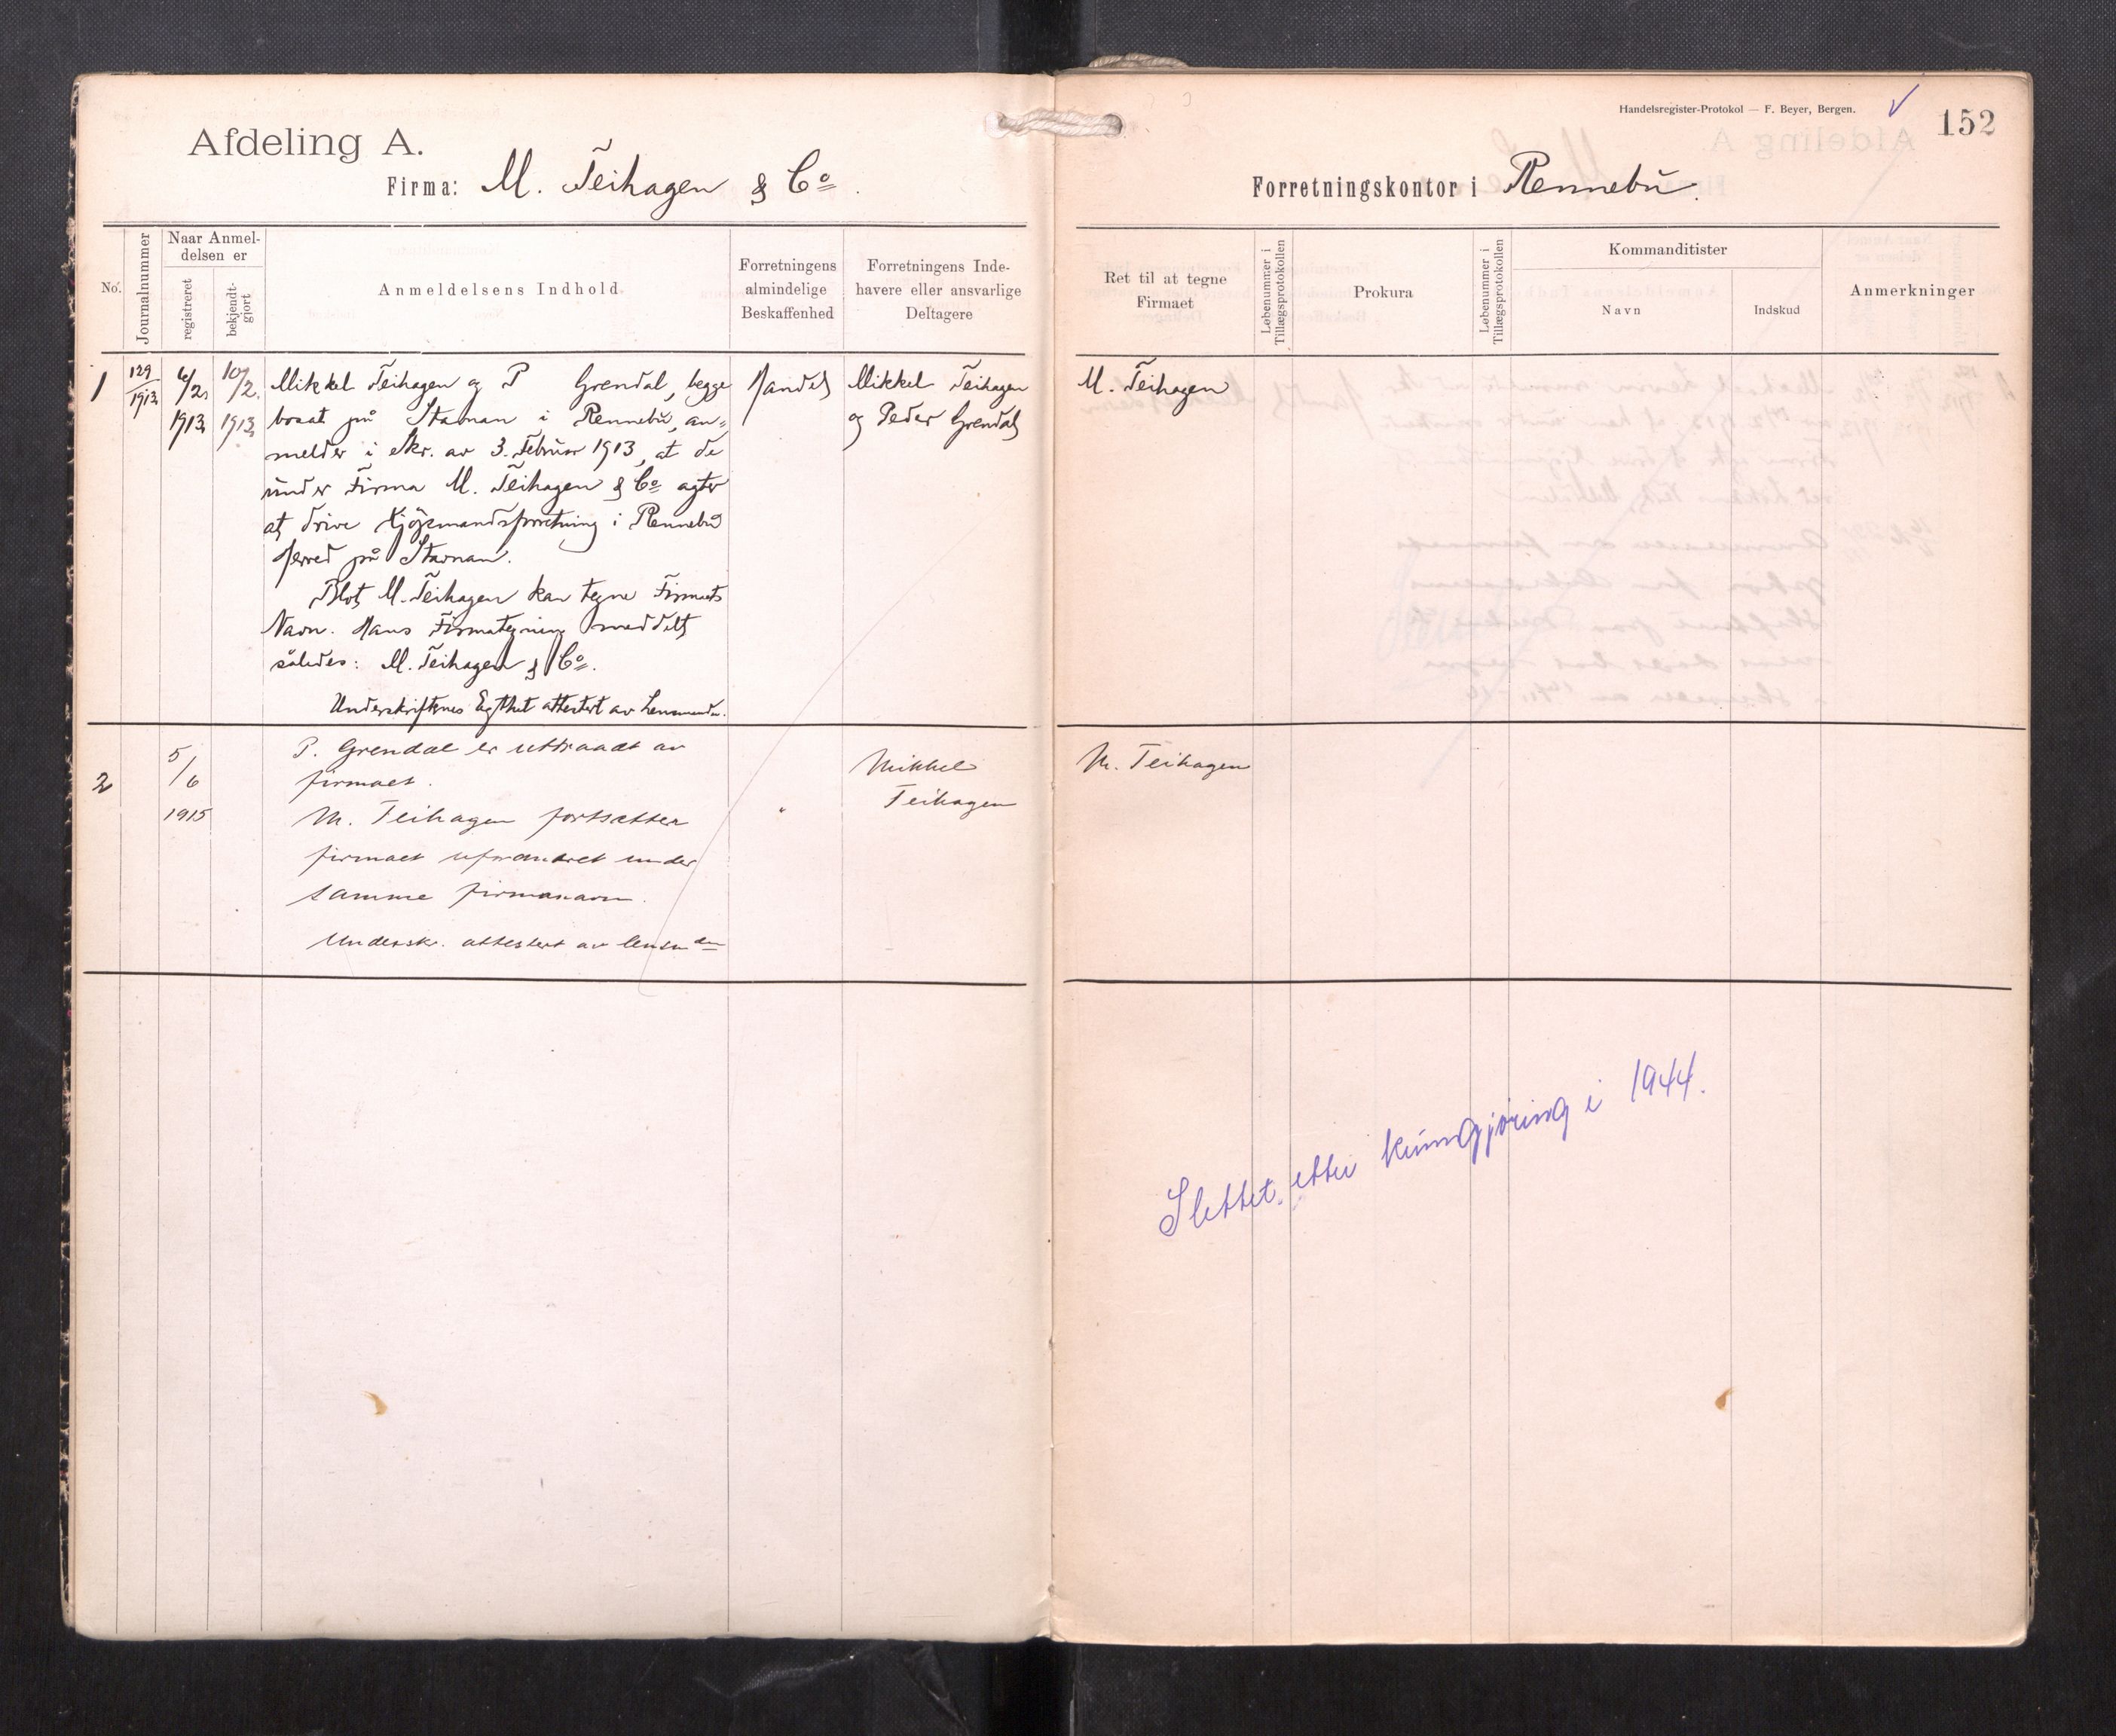 Afdeling A.
Firma: M. Teihagen & Co.
Handelsregister-Protokol — F. Beyer, Bergen.
152
Forretningskontor i Rennebu.
No.
Journalnummer
Naar Anmel-
delsen er
registreret
bekjendt-
gjort
Anmeldelsens Indhold
Forretningens
almindelige
Beskaffenhed
Forretningens Inde-
havere eller ansvarlige
Deltagere
Ret til at tegne
Firmaet
Løbenummer i
Tillægsprotokollen
Prokura
Løbenummer i
Tillægsprotokollen
Kommanditister
Navn
Indskud
Anmerkninger
1
129
1913
6/2
1913
10/2
1913
Mikkel Teihagen og P Grendal, begge
bosat på Stavnan i Rennebu, an-
melder i skr. av 3. Februar 1913, at de
under Firma M. Teihagen & Co agter
at drive Kjøpmandsforretning i Rennebu
Herred på Stavnan.
Blot M. Teihagen kan tegne Firmaets
Navn. Hans Firmategning meddelt
således: M. Teihagen & Co.
Underskriftenes Egthet attestert av Lensmanden.
Handel
Mikkel Teihagen
og Peder Grendal
M. Teihagen
2
5/6
1915
P. Grendal er uttraadt av
firmaet.
M. Teihagen fortsætter
firmaet uforandret under
samme firmanavn.
Undersk. attestert av lensmden
"
Mikkel
Teihagen
M. Teihagen
Slettet etter kunngjøring i 1944.